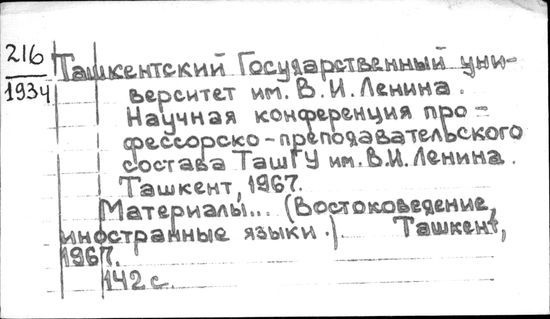 216
1934
Ташкентский Государственный уни-
верситет им. В.И. Ленина.
Научная конференция про-
фессорско-преподавательского
состава ТашГУ им. В.И. Ленина.
Ташкент, 1967.
Материалы... (Востоковедение,
иностранные языки.) Ташкент,
1967.
142 с.